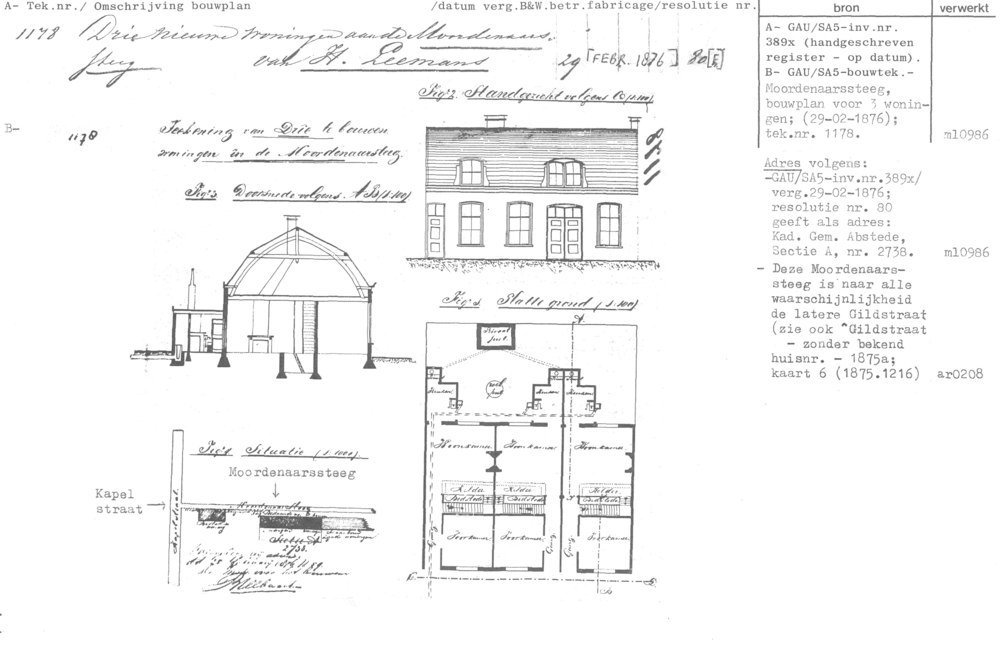 A- Tek.nr./ Omschrijving bouwplan /datum verg.B&W.betr.fabricage/resolutie nr.
1178 Drie nieuwe woningen aan de Moordenaars-
steeg van H. Leemans 29 [FEBR. 1876] 80[E]
B-
1178
Teekening van Drie te bouwen
woningen in de Moordenaarsteeg.
Fig. 3. Doorsnede volgens A B (1:100)
Fig. 2. Standgezicht volgens (1:100)
1178
Fig. 1. Platte grond (1:100)
A
Privaat
put.
Keuken
Keuken
Keuken
Woonkamer
Woonkamer
Woonkamer
Kelder
Kelder
Kelder
Bedstede
Bedstede
Bedstede
Gang
Gang
Gang
Voorkamer
Voorkamer
Voorkamer
B
Fig. Situatie (1:1000)
Moordenaarssteeg
Kapel
straat
Kapelstraat
Sectie A
2738.
bron
A- GAU/SA5-inv.nr.
389x (handgeschreven
register - op datum).
B- GAU/SA5-bouwtek.-
Moordenaarssteeg,
bouwplan voor 3 wonin-
gen; (29-02-1876);
tek.nr. 1178.
Adres volgens:
-GAU/SA5-inv.nr.389x/
verg.29-02-1876;
resolutie nr. 80
geeft als adres:
Kad. Gem. Abstede,
Sectie A, nr. 2738.
- Deze Moordenaars-
steeg is naar alle
waarschijnlijkheid
de latere Gildstraat
(zie ook ^Gildstraat
- zonder bekend
huisnr. - 1875a;
kaart 6 (1875.1216)
verwerkt
ml0986
ml0986
ar0208